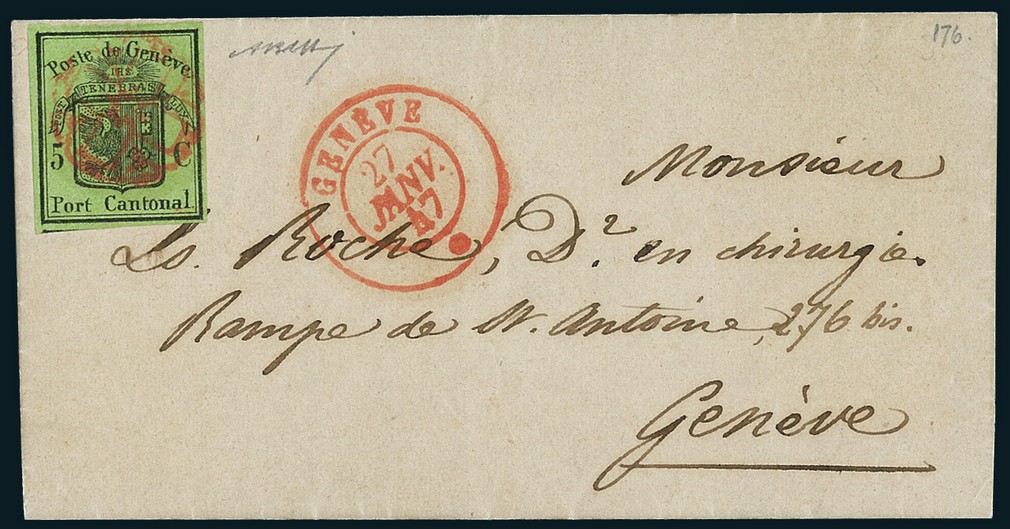 Poste de Genève
IHS
POST TENEBRAS LUX
5 C
Port Cantonal
176.
GENÈVE
27
JANV.
47
Monsieur
Ls. Roche, Dr. en chirurgie.
Rampe de St. Antoine, 276 bis.
Genève